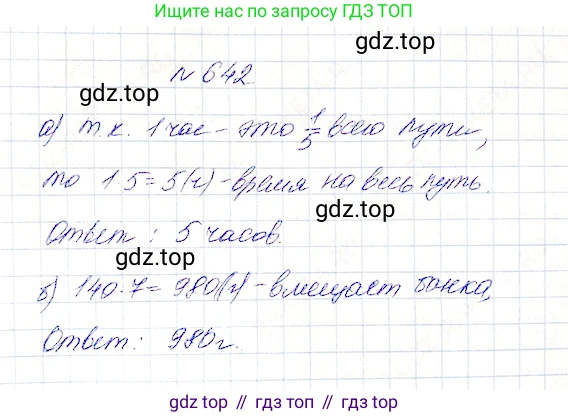 Ищите нас по запросу ГДЗ ТОП
гдз.top
№ 642.
гдз.top
а) т.к. 1 час – это 1/5 всего пути,
то 1·5=5(ч) – время на весь путь.
гдз.top
Ответ: 5 часов.
гдз.top
б) 140·7=980(г) – вмещает банка,
Ответ: 980 г.
гдз.top // гдз топ // gdz.top